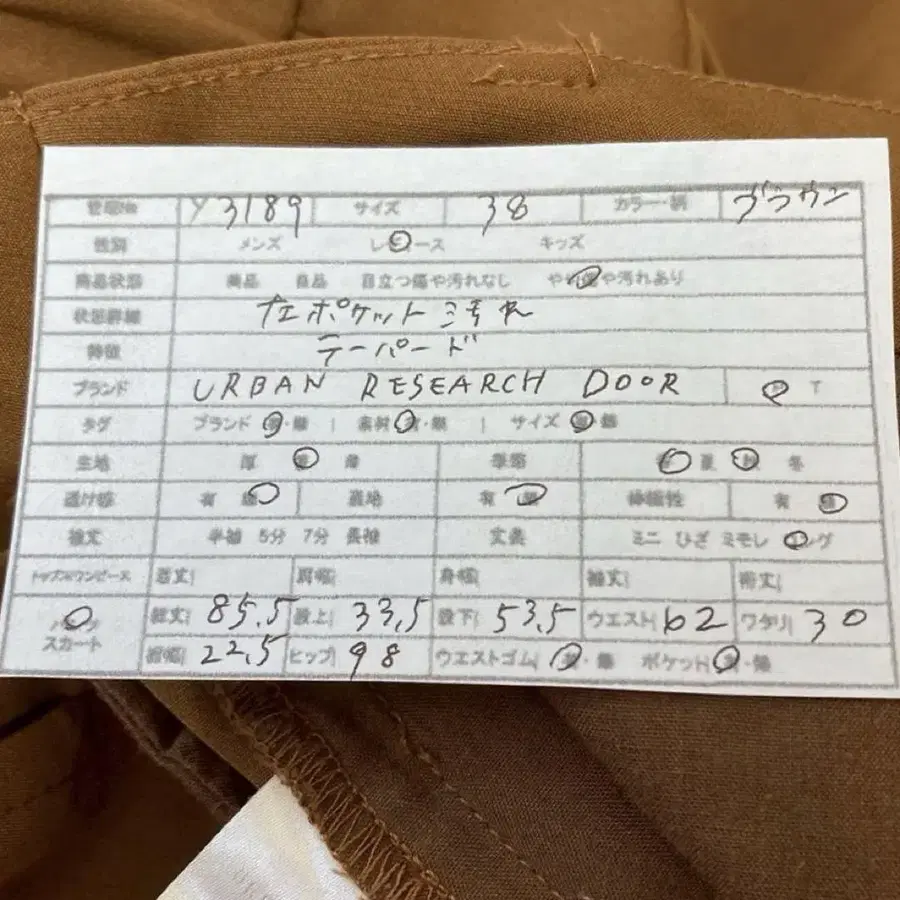 管理No Y3189 サイズ 38 カラー・柄 ブラウン
性別 メンズ レディース キッズ
商品状態 美品 良品 目立つ傷や汚れなし やや傷や汚れあり
状態詳細 左ポケット 汚れ
特徴 テーパード
ブランド URBAN RESEARCH DOOR T
タグ ブランド 有・無 | 素材 有・無 | サイズ 有・無
生地 厚 普 薄 季節 春 夏 秋 冬
透け感 有 無 裏地 有 無 伸縮性 有 無
袖丈 半袖 5分 7分 長袖 丈長 ミニ ひざ ミモレ ロング
トップス/ワンピース 着丈| 肩幅| 身幅| 袖丈| 裄丈|
総丈| 85.5 股上| 33.5 股下| 53.5 ウエスト| 62 ワタリ| 30
スカート
裾幅| 22.5 ヒップ| 98 ウエストゴム| 有・無 ポケット| 有・無